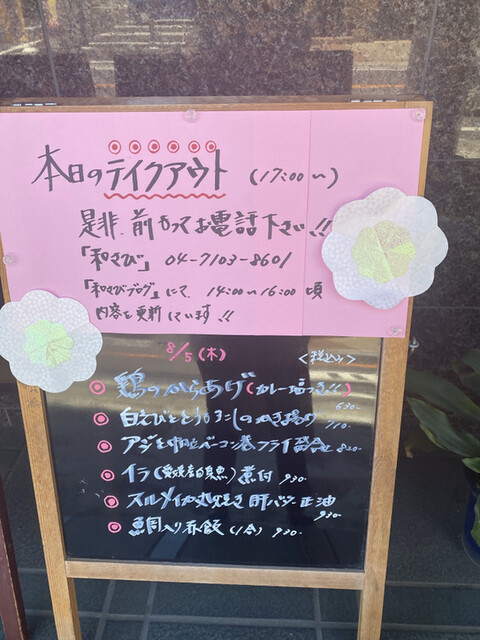 本日のテイクアウト (17:00〜)
是非、前もってお電話下さい!!
「和さび」 04-7103-8601
「和さびブログ」にて、14:00〜16:00頃
内容を更新しています!!
8/5(木) <税込み>
鶏のからあげ(カレー塩つき!!) 630-
白えびととうもろこしのかき揚げ 710-
アジと中巴ベーコン巻フライ盛合せ 820-
イラ(愛媛白身魚)煮付 930-
スルメイカ丸焼き 肝バター正油 930-
鯛入り赤飯(1合) 930-